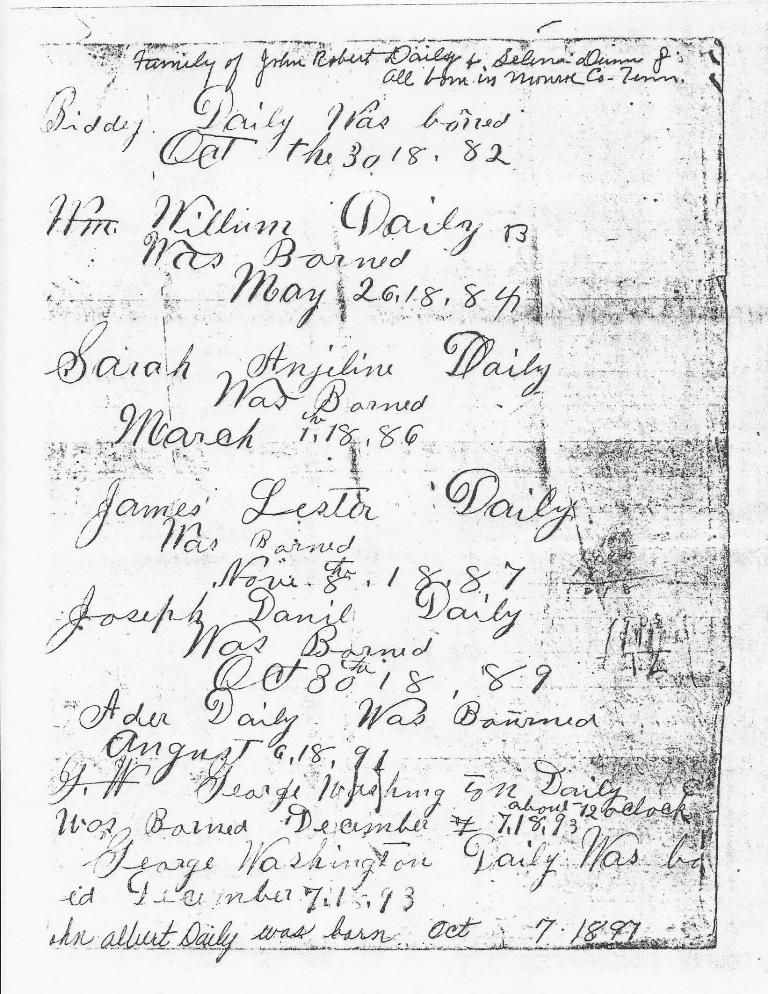 Family of John Robert Daily & Selena Dunn
All born in Monroe Co-Tenn.
Biddey Daily Was borned
Oct the 30 18. 82
Wm. Willium Daily B
Was Borned
May 26. 18. 84
Sarah Anjiline Daily
Was Borned
March 1th, 18, 86
James Lester Daily
Was Borned
Nove. 8th. 18. 87
Joseph Danil Daily
Was Borned
Oct 30th 18, 89
Ader Daily Was Bourned
August 6, 18, 91
G. W George Washing ton Daily
about 12 oclock
Was Borned December 7, 18, 93
George Washington Daily Was bo
ed December 7, 18, 93
ohn albert Daily was born Oct 7. 1897